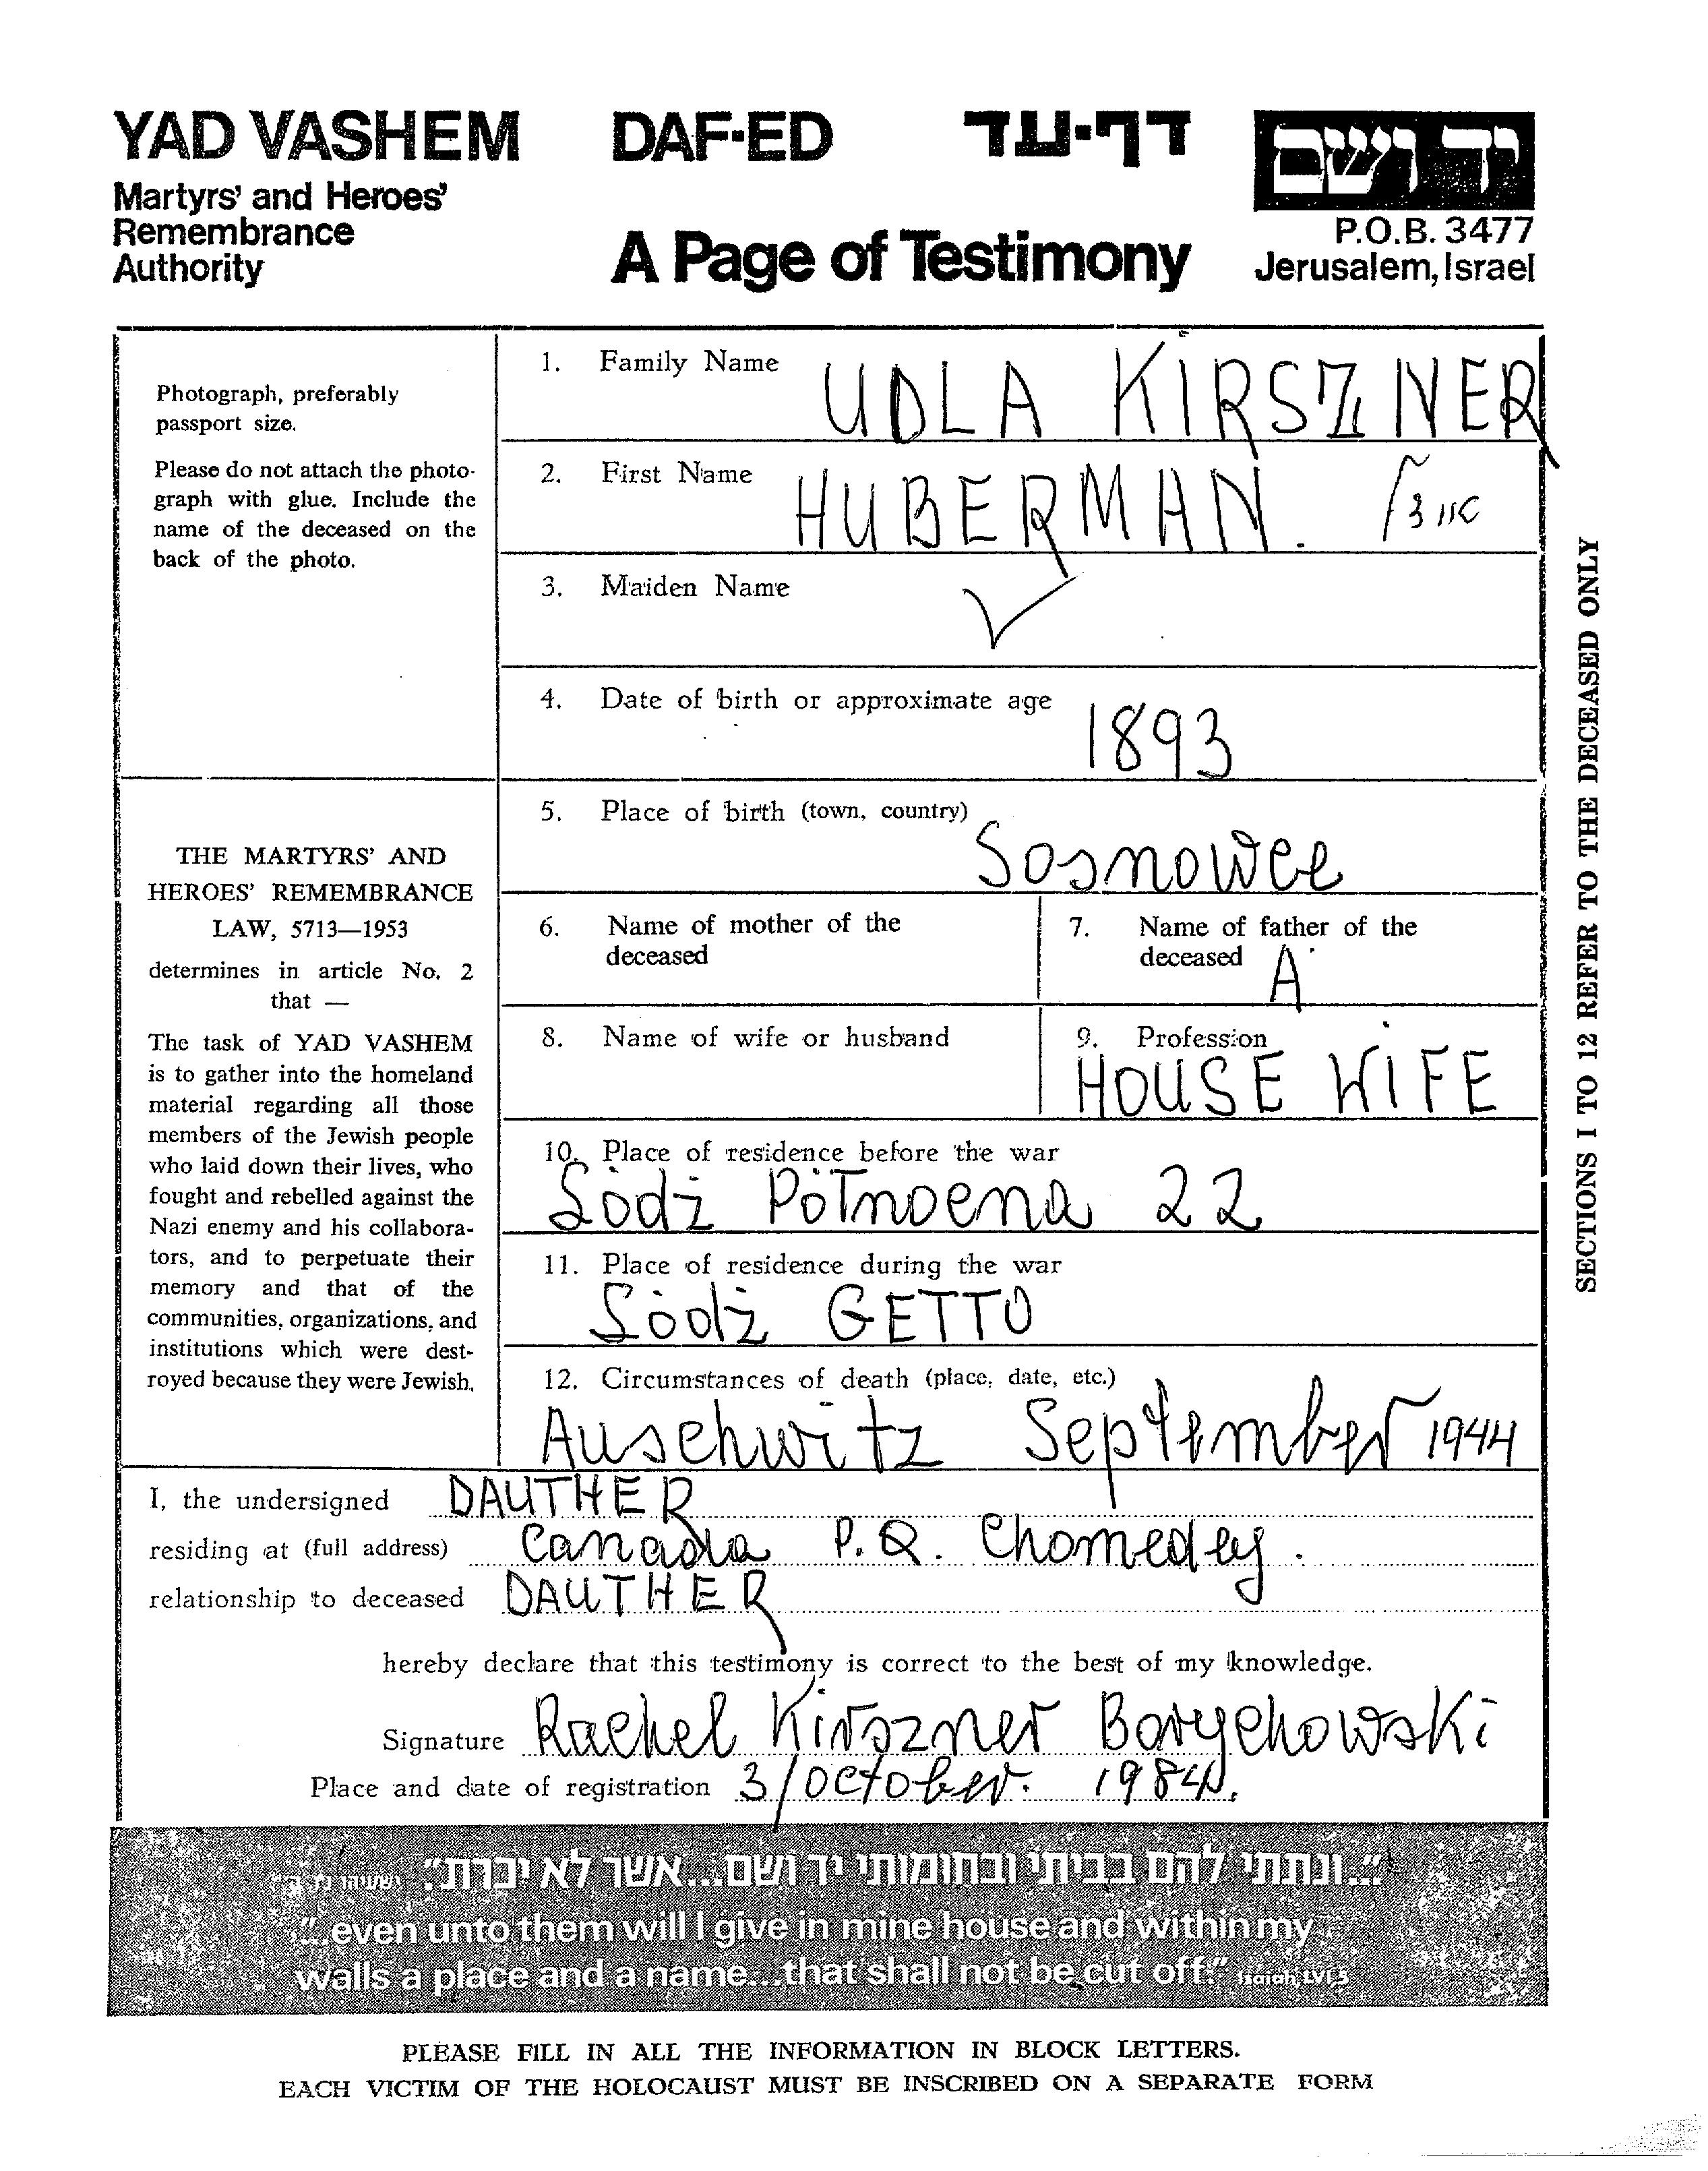 YAD VASHEM DAF-ED דף-עד יד ושם
Martyrs' and Heroes'
Remembrance
Authority
A Page of Testimony
P.O.B. 3477
Jerusalem, Israel
Photograph, preferably
passport size.
Please do not attach the photo-
graph with glue. Include the
name of the deceased on the
back of the photo.
THE MARTYRS' AND
HEROES' REMEMBRANCE
LAW, 5713—1953
determines in article No. 2
that —
The task of YAD VASHEM
is to gather into the homeland
material regarding all those
members of the Jewish people
who laid down their lives, who
fought and rebelled against the
Nazi enemy and his collabora-
tors, and to perpetuate their
memory and that of the
communities, organizations, and
institutions which were dest-
royed because they were Jewish.
1. Family Name UDLA KIRSZNER
2. First Name HUBERMAN.
3. Maiden Name
4. Date of birth or approximate age 1893
5. Place of birth (town, country)
Sosnowce
6. Name of mother of the
deceased
7. Name of father of the
deceased A
8. Name of wife or husband
9. Profession
HOUSE WIFE
10. Place of residence before the war
Łódż Północna 22
11. Place of residence during the war
Łódż GETTO
12. Circumstances of death (place, date, etc.)
Auschwitz September 1944
I, the undersigned DAUTHER
residing at (full address) Canada P.Q. Chomedey.
relationship to deceased DAUTHER
hereby declare that this testimony is correct to the best of my knowledge.
Signature Rachel Kirszner Borychowski
Place and date of registration 3/October. 1984.
SECTIONS 1 TO 12 REFER TO THE DECEASED ONLY
"...ונתתי להם בביתי ובחומותי יד ושם...אשר לא יכרת." ישעיהו נ"ו, ה'
"...even unto them will I give in mine house and within my
walls a place and a name...that shall not be cut off." Isaiah, LVI, 5
PLEASE FILL IN ALL THE INFORMATION IN BLOCK LETTERS.
EACH VICTIM OF THE HOLOCAUST MUST BE INSCRIBED ON A SEPARATE FORM